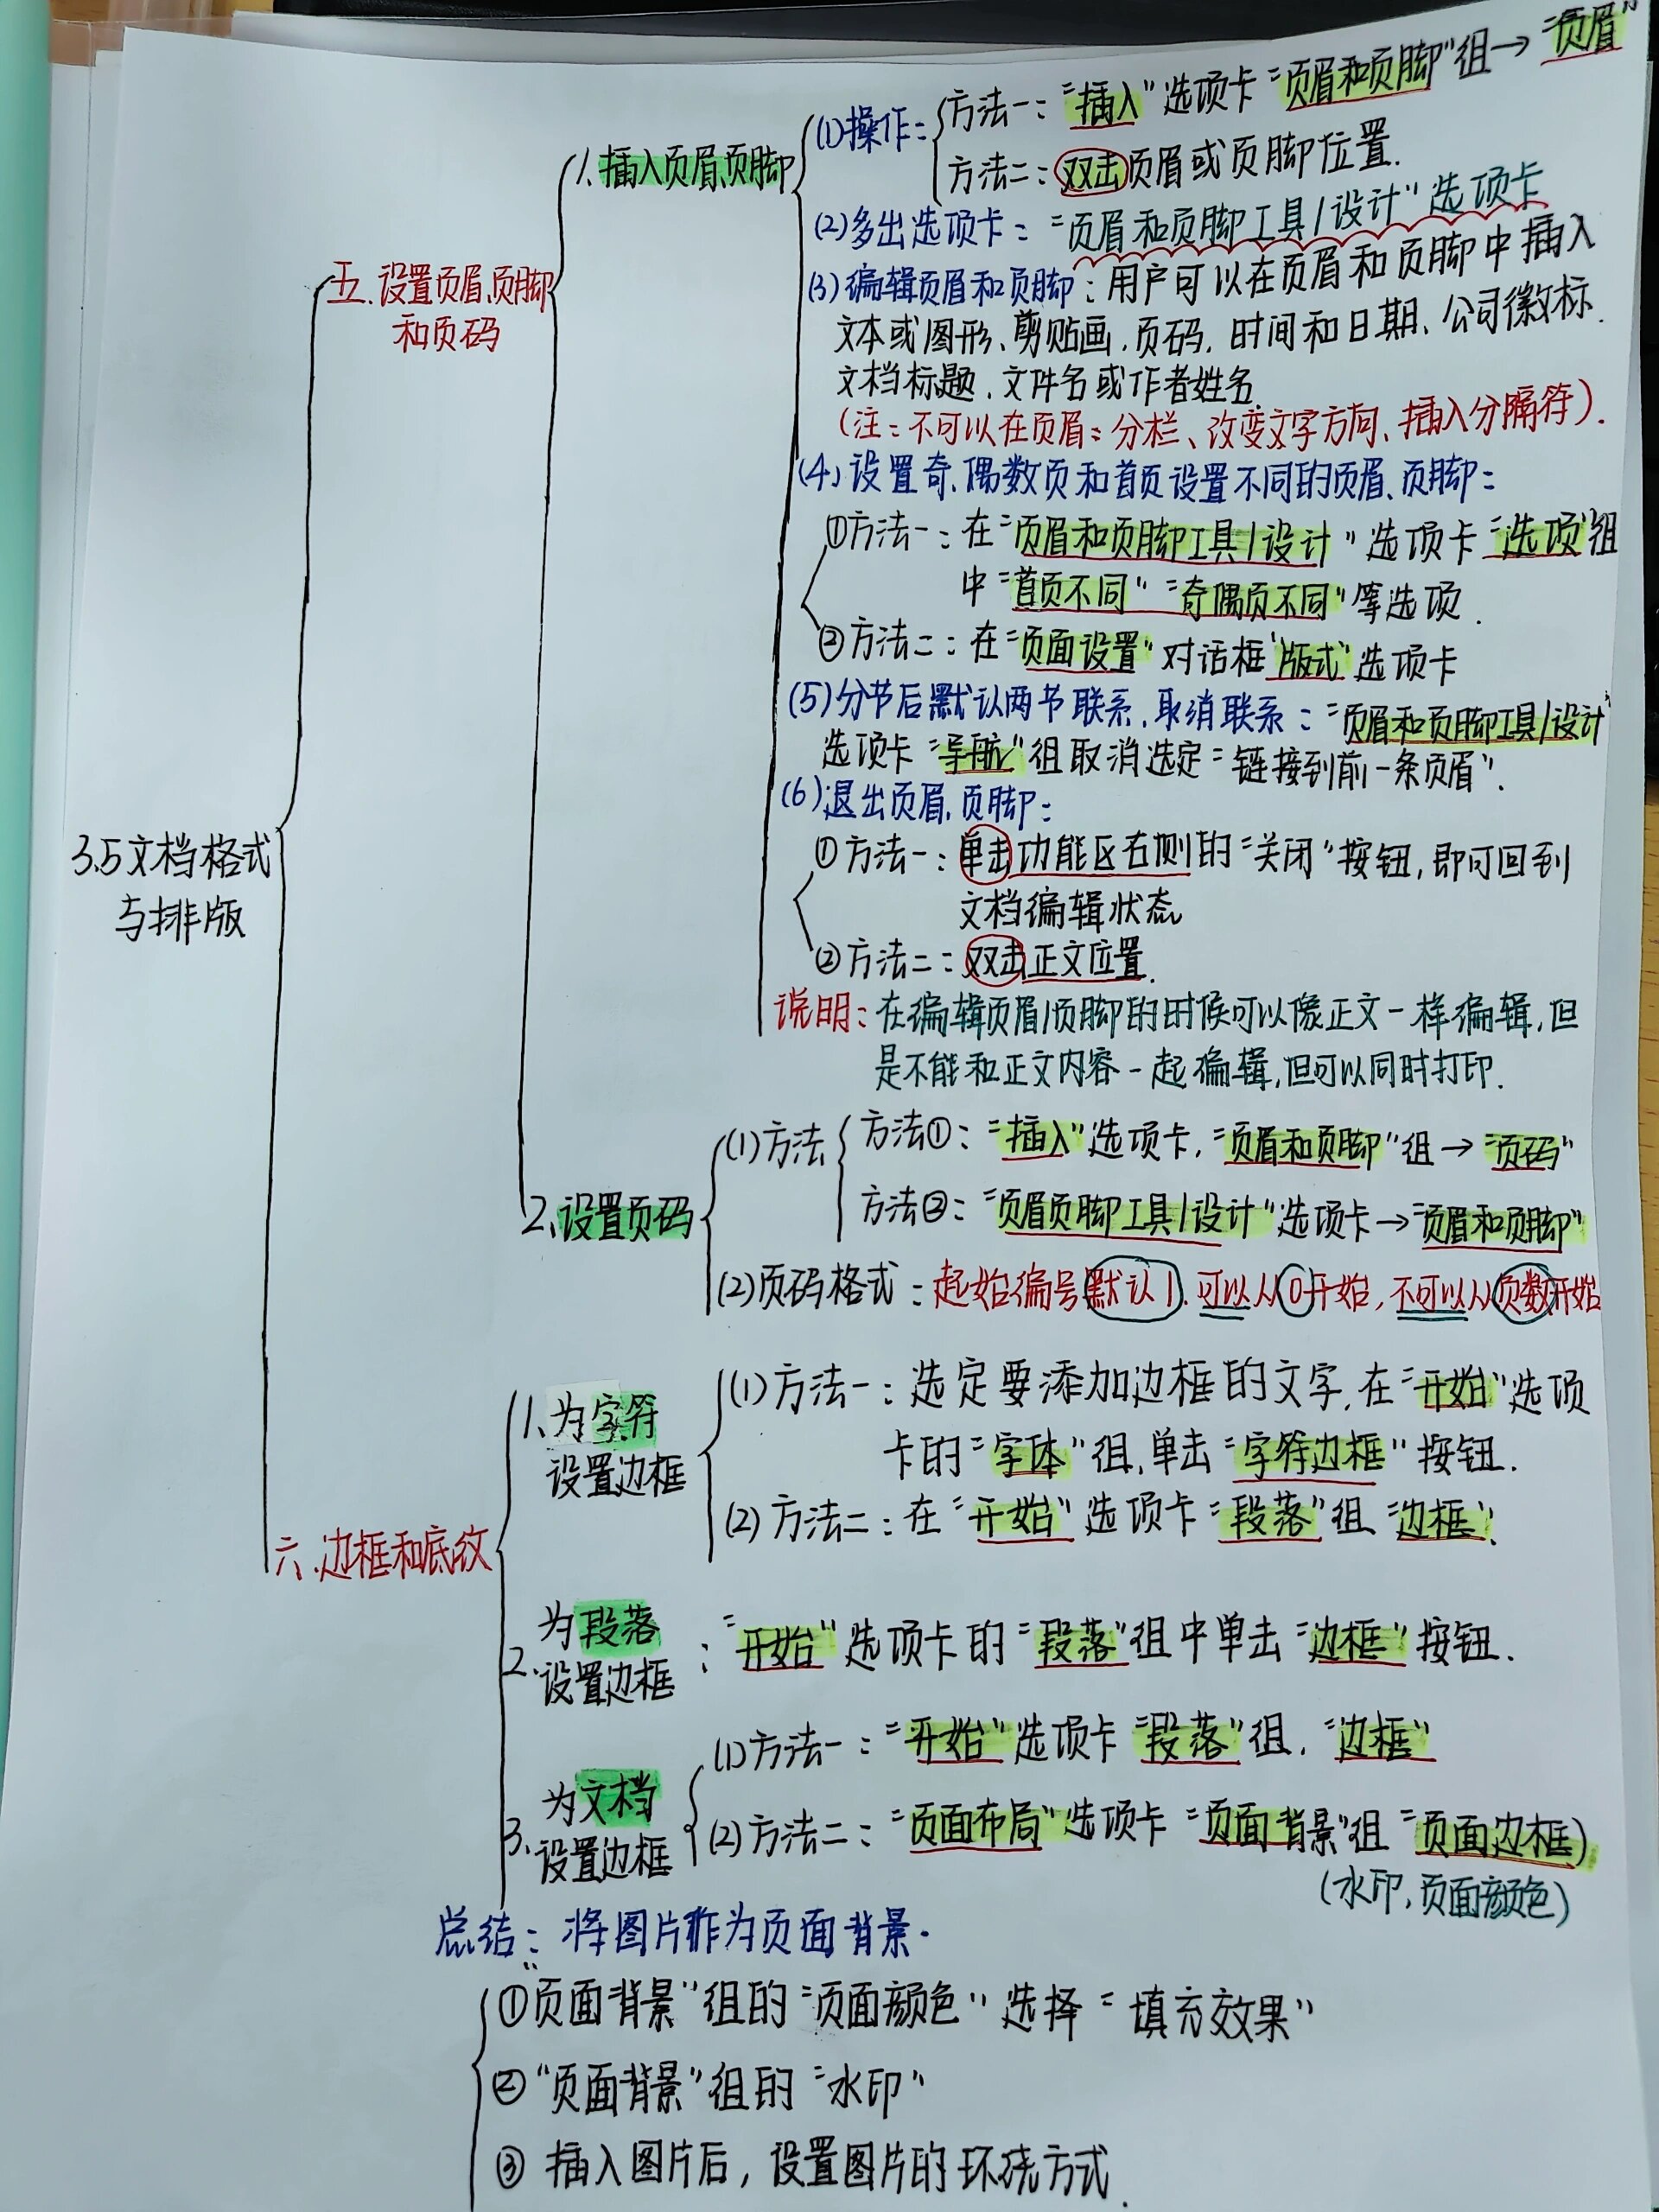 3.5文档格式
与排版
五.设置页眉、页脚
和页码
1.插入页眉、页脚
(1)操作:
方法一:“插入”选项卡“页眉和页脚”组→“页眉”
方法二:双击页眉或页脚位置.
(2)多出选项卡:“页眉和页脚工具/设计”选项卡
(3)编辑页眉和页脚:用户可以在页眉和页脚中插入
文本或图形、剪贴画、页码、时间和日期、公司徽标、
文档标题、文件名或作者姓名.
(注:不可以在页眉:分栏、改变文字方向、插入分隔符).
(4)设置奇、偶数页和首页设置不同的页眉、页脚:
①方法一:在“页眉和页脚工具/设计”选项卡“选项”组
中“首页不同”“奇偶页不同”等选项.
②方法二:在“页面设置”对话框“版式”选项卡
(5)分节后默认两节联系,取消联系:“页眉和页脚工具/设计”
选项卡“导航”组取消选定“链接到前一条页眉”.
(6)退出页眉、页脚:
①方法一:单击功能区右侧的“关闭”按钮,即可回到
文档编辑状态
②方法二:双击正文位置.
说明:在编辑页眉/页脚的时候可以像正文一样编辑,但
是不能和正文内容一起编辑,但可以同时打印.
2.设置页码
(1)方法
方法①:“插入”选项卡,“页眉和页脚”组→“页码”
方法②:“页眉页脚工具/设计”选项卡→“页眉和页脚”
(2)页码格式:起始编号默认1.可以从0开始,不可以从负数开始
六.边框和底纹
1.为字符
设置边框
(1)方法一:选定要添加边框的文字,在“开始”选项
卡的“字体”组,单击“字符边框”按钮.
(2)方法二:在“开始”选项卡“段落”组“边框”.
2.为段落
设置边框
:“开始”选项卡的“段落”组中单击“边框”按钮.
3.为文档
设置边框
(1)方法一:“开始”选项卡“段落”组,“边框”
(2)方法二:“页面布局”选项卡“页面背景”组“页面边框)
(水印,页面颜色)
总结:将图片作为页面背景.
①“页面背景”组的“页面颜色”选择“填充效果”
②“页面背景”组的“水印”
③ 插入图片后,设置图片的环绕方式.